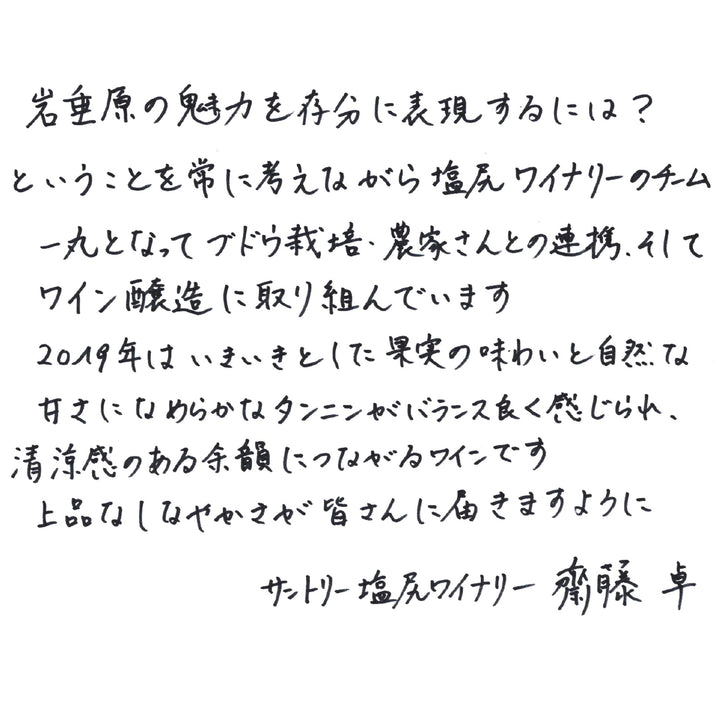 岩垂原の魅力を存分に表現するには？
ということを常に考えながら塩尻ワイナリーのチーム
一丸となってブドウ栽培・農家さんとの連携、そして
ワイン醸造に取り組んでいます
2019年はいきいきとした果実の味わいと自然な
甘さになめらかなタンニンがバランス良く感じられ、
清涼感のある余韻につながるワインです
上品なしなやかさが皆さんに届きますように
サントリー塩尻ワイナリー 齋藤 卓